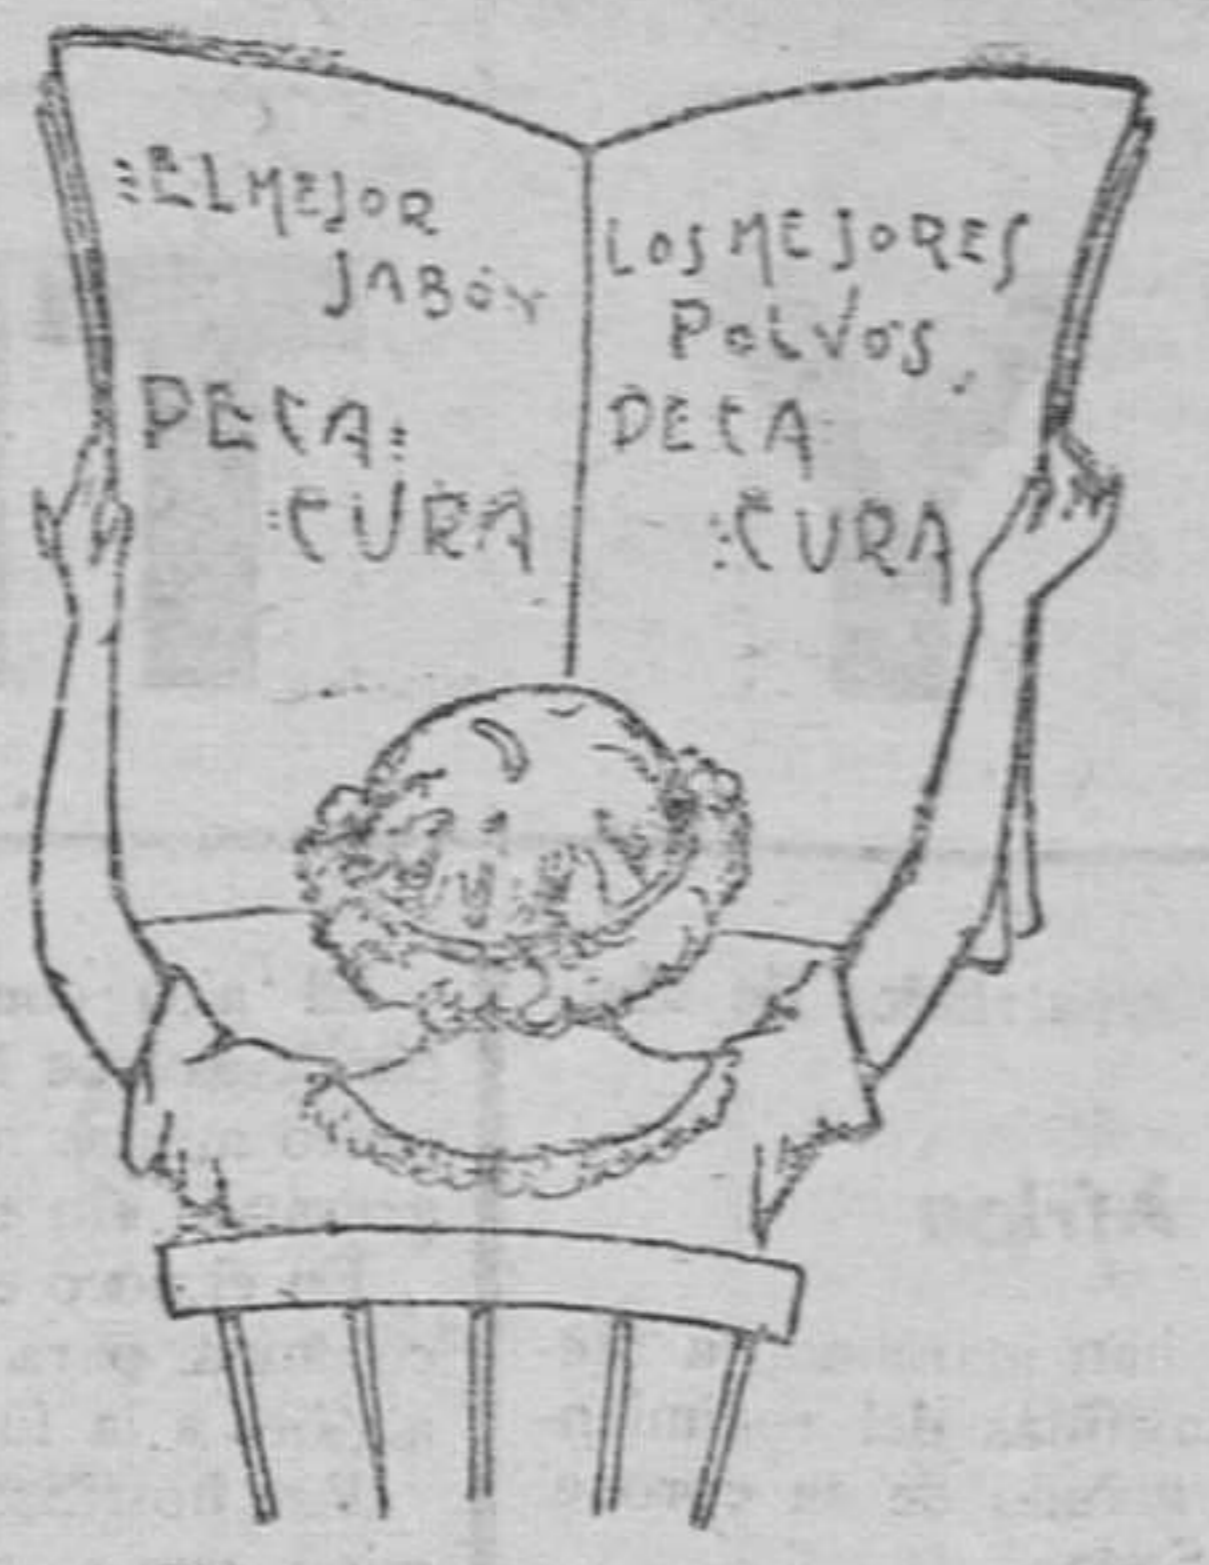 :EL MEJOR
JABÓN
PECA:
:CURA
LOS MEJORES
POLVOS.
DECA
:CURA